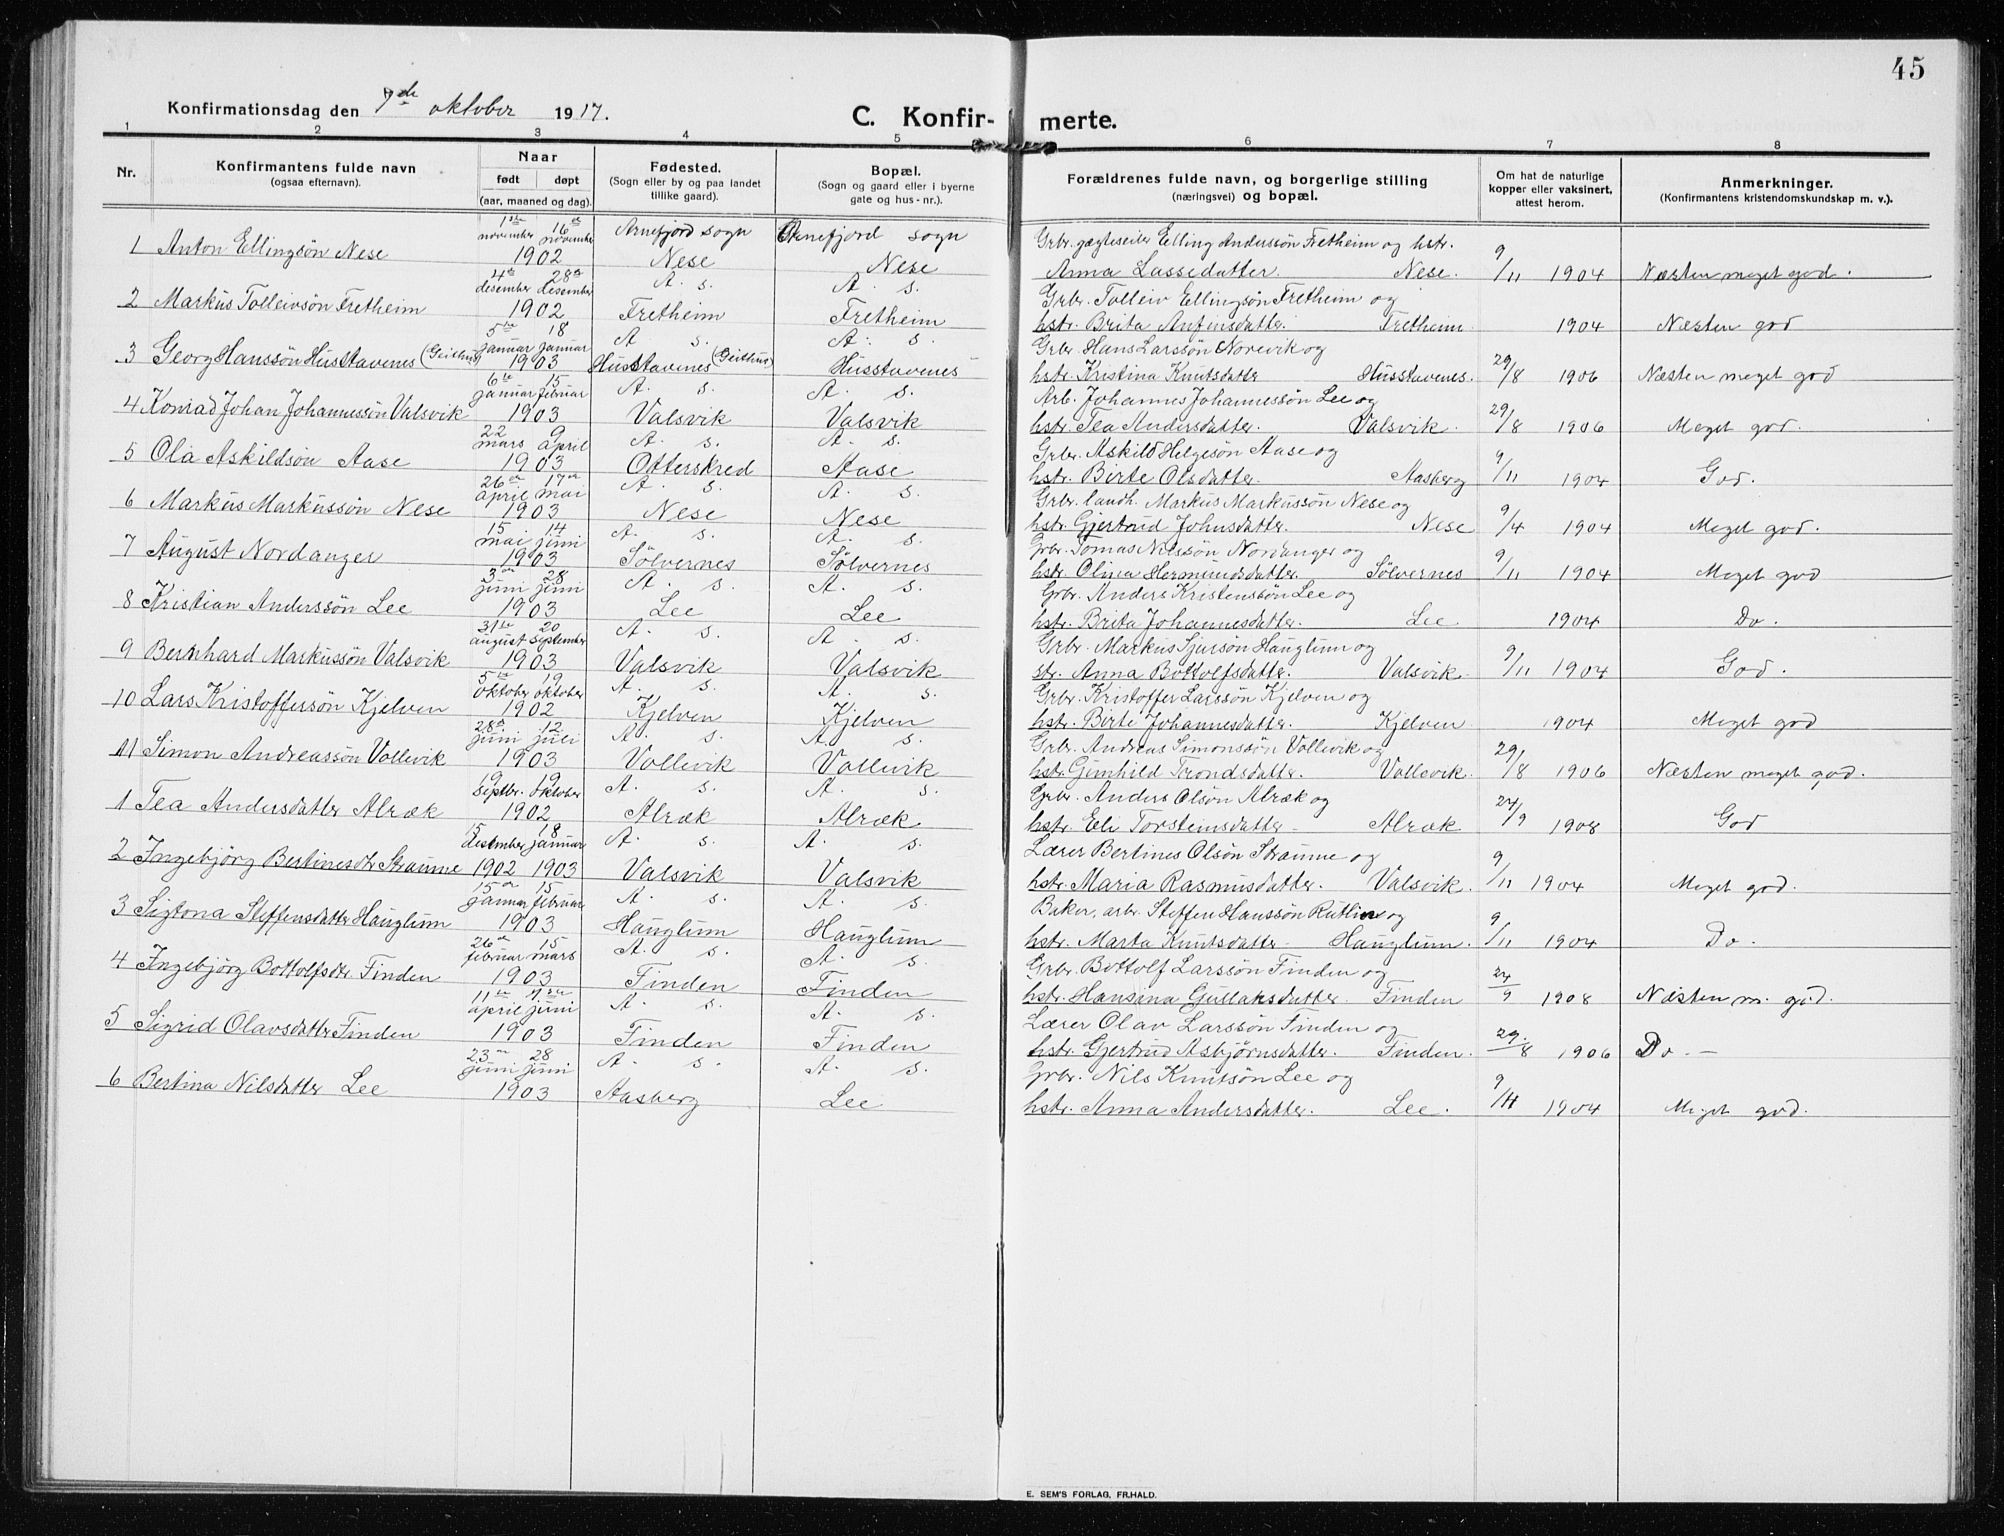 45
Konfirmationsdag den 7de oktober 1917.
C. Konfir- merte.
1 2 3 4 5 6 7 8
Nr.
Konfirmantens fulde navn
(ogsaa efternavn).
Naar
født døpt
(aar, maaned og dag).
Fødested.
(Sogn eller by og paa landet
tillike gaard).
Bopæl.
(Sogn og gaard eller i byerne
gate og hus-nr.).
Forældrenes fulde navn, og borgerlige stilling
(næringsvei) og bopæl.
Om hat de naturlige
kopper eller vaksinert,
attest herom.
Anmerkninger.
(Konfirmantens kristendomskundskap m. v.).
1ste 16de Arnefjord sogn Arnefjord sogn Grbr. gjæstg Elling Anderssøn Fretheim og hstr.
november november
1 Anton Ellingsøn Nese 1902 Nese Nese Anna Lassedatter. Nese. 9/11 1904 Næsten meget god.
4de 28de A. s. A. s. Grbr. Tolleiv Ellingsøn Fretheim og
desember desember
2 Markus Tolleivsøn Fretheim 1902 Fretheim Fretheim hstr. Brita Anfinsdatter. Fretheim 1904 Næsten god
5te 18 A. s. A. s. Grbr. Hans Larssøn Norevik og
januar januar
3 Georg Hanssøn Husstavenes (Geithus) 1903 Husstavenes (Geithus) Husstavenes hstr. Kristina Knutsdatter Husstavenes. 29/8 1906 Næsten meget god
6te 15 A. s. A. s. Arb. Johannes Johannessøn Lee og
januar februar
4 Konrad Johan Johannessøn Valsvik 1903 Valsvik Valsvik hstr. Tea Andersdatter. Valsvik. 29/8 1906 Meget god.
22 9 A. s. A. s. Grbr. Askild Helgesøn Aase og
mars april
5 Ola Askildsøn Aase 1903 Otterskred Aase hstr. Birte Olsdatter. Aasberg 9/11 1904 God.
26de 17de A. s. A. s. Grbr. landh. Markus Markussøn Nese og
april mai
6 Markus Markussøn Nese 1903 Nese Nese hstr. Gjertrud Johnsdatter. Nese 9/4 1904 Meget god.
15 14 A. s. A. s. Grbr. Tomas Nilssøn Nordanger og
mai juni
7 August Nordanger 1903 Sølvernes Sølvernes hstr. Olina Hermundsdatter. Sølvernes 9/11 1904 Meget god
3de 28 A. s. A. s. Grbr. Anders Kristenssøn Lee og
juni juni
8 Kristian Anderssøn Lee 1903 Lee Lee hstr. Brita Johannesdatter. Lee 1904 Do.
31te 20 A. s. A. s. Grbr. Markus Sjursøn Hauglum og
august september
9 Bernhard Markussøn Valsvik 1903 Valsvik Valsvik str. Anna Bottolfsdatter. Valsvik 9/11 1904 God.
5te 19 A. s. A. s. Grbr. Kristoffer Larssøn Kjelven og
oktober oktober
10 Lars Kristoffersøn Kjelven 1902 Kjelven Kjelven hstr. Birte Johannesdatter. Kjelven 1904 Meget god
28de 12 A. s. A. s. Grbr. Andreas Simonssøn Vollevik og
juni juli
11 Simon Andreassøn Vollevik 1903 Vollevik Vollevik hstr. Gunhild Trondsdatter. Vollevik. 29/8 1906 Næsten meget god.
19 19 A. s. A. s. Grbr. Anders Olsøn Alræk og
septbr. oktober
1 Tea Andersdatter Alræk 1902 Alræk Alræk hstr. Eli Torsteinsdatter. Alræk 24/9 1908 God
15 18 A. s. A. s. Lærer Bertines Olsøn Straume og
desember januar
2 Ingebjörg Bertinesdtr Straume 1902 1903 Valsvik Valsvik hstr. Maria Rasmusdatter. Valsvik. 9/11 1904 Meget god.
15de 15 A. s. A. s. Baker, arb. Steffen Hanssøn Rutlin og
januar februar
3 Sigtona Steffensdatter Hauglum 1903 Hauglum Hauglum hstr. Marta Knutsdatter Hauglum. 9/11 1904 Do.
26de 15 A. s. A. s. Grbr. Bottolf Larssøn Finden og
februar mars
4 Ingebjörg Bottolfsdtr. Finden 1903 Finden Finden hstr. Hansina Gullaksdatter. Finden 24/9 1908 Næsten m. god.
11te A. s. A. s. Lærer Olav Larssøn Finden og
april juni
5 Sigrid Olavsdatter Finden 1903 Finden Finden hstr. Gjertrud Asbjørnsdatter. Finden. 29/8 1906 Do. —
23de 28 A. s. A. s. Grbr. Nils Knutsøn Lee og
juni juni
6 Bertina Nilsdatter Lee 1903 Aasberg Lee hstr. Anna Andersdatter. Lee. 9/11 1904 Meget god.
E. SEM'S FORLAG, FR.HALD.